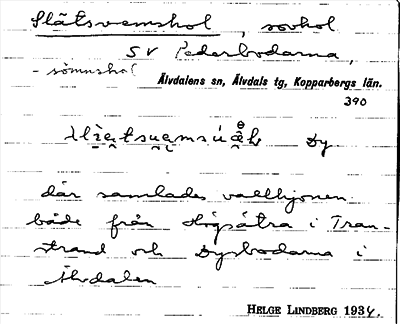 Slätsvemshol, sovhol
SV Pederbodarna,
- sömnshol
Älvdalens sn, Älvdals tg, Kopparbergs län.
390
Dy
där samlades vallhjonen
både från Högsätra i Tran-
strand och Dysbodarna i
Älvdalen
HELGE LINDBERG 1934.